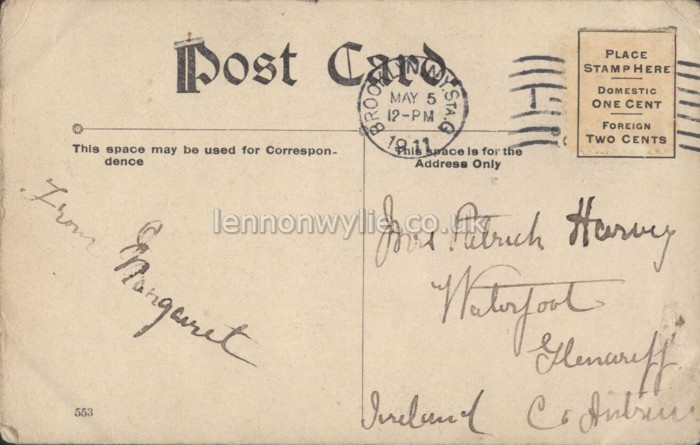 Post Card
BROOKLYN, N.Y. STA. G
MAY 5
12-PM
1911
1
PLACE
STAMP HERE
DOMESTIC
ONE CENT
FOREIGN
TWO CENTS
This space may be used for Correspon-
dence
This space is for the
Address Only
From
Margaret
lennonwylie.co.uk
Mrs Patrick Harvey
Waterfoot
Glenariff
Ireland Co Antrim
553